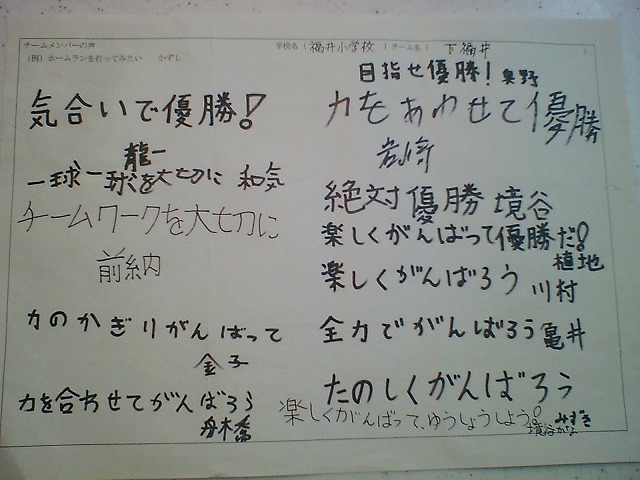 チームメンバーの声
(例)ホームランを打ってみたい かずし
学校名(福井小学校)チーム名(下福井)
気合いで優勝!
龍一
一球一球を大切に 和気
チームワークを大切に
前納
力のかぎりがんばって
金子
力を合わせてがんばろう
舟木
目指せ優勝!奥野
力をあわせて優勝
岩崎
絶対優勝 境谷
楽しくがんばって優勝だ!
植地
楽しくがんばろう
川村
全力でがんばろう 亀井
たのしくがんばろう
みずき
楽しくがんばって、ゆうしょうしよう!
境谷かな